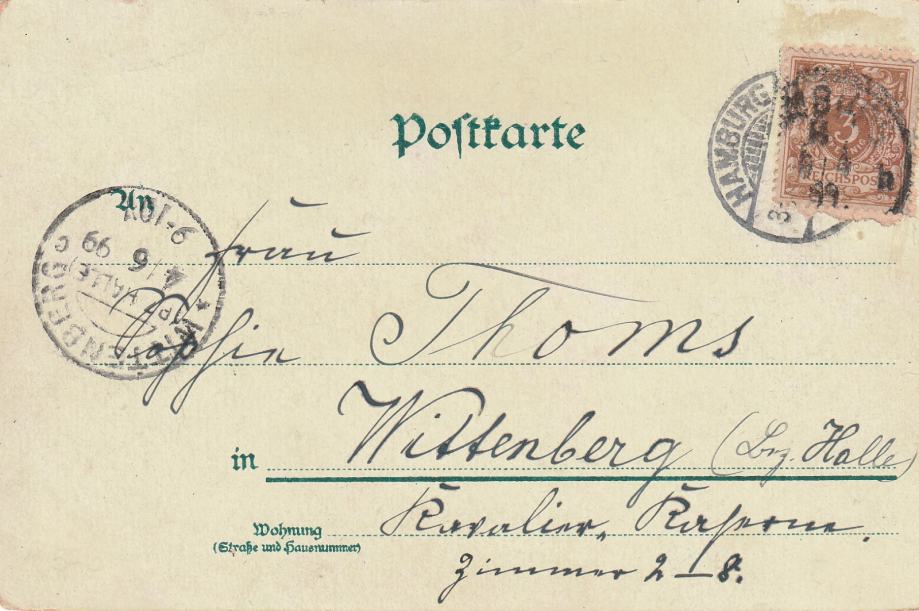 Postkarte
HAMBURG
3
REICHSPOST
99.
h
An
9-10V
4/6 99
(BZ. HALLE)
* WITTENBERG C
Frau
Sophie Thoms
in Wittenberg (Bz. Halle)
Wohnung
(Straße und Hausnummer)
Kavalier-Kaserne.
Zimmer 2-8.